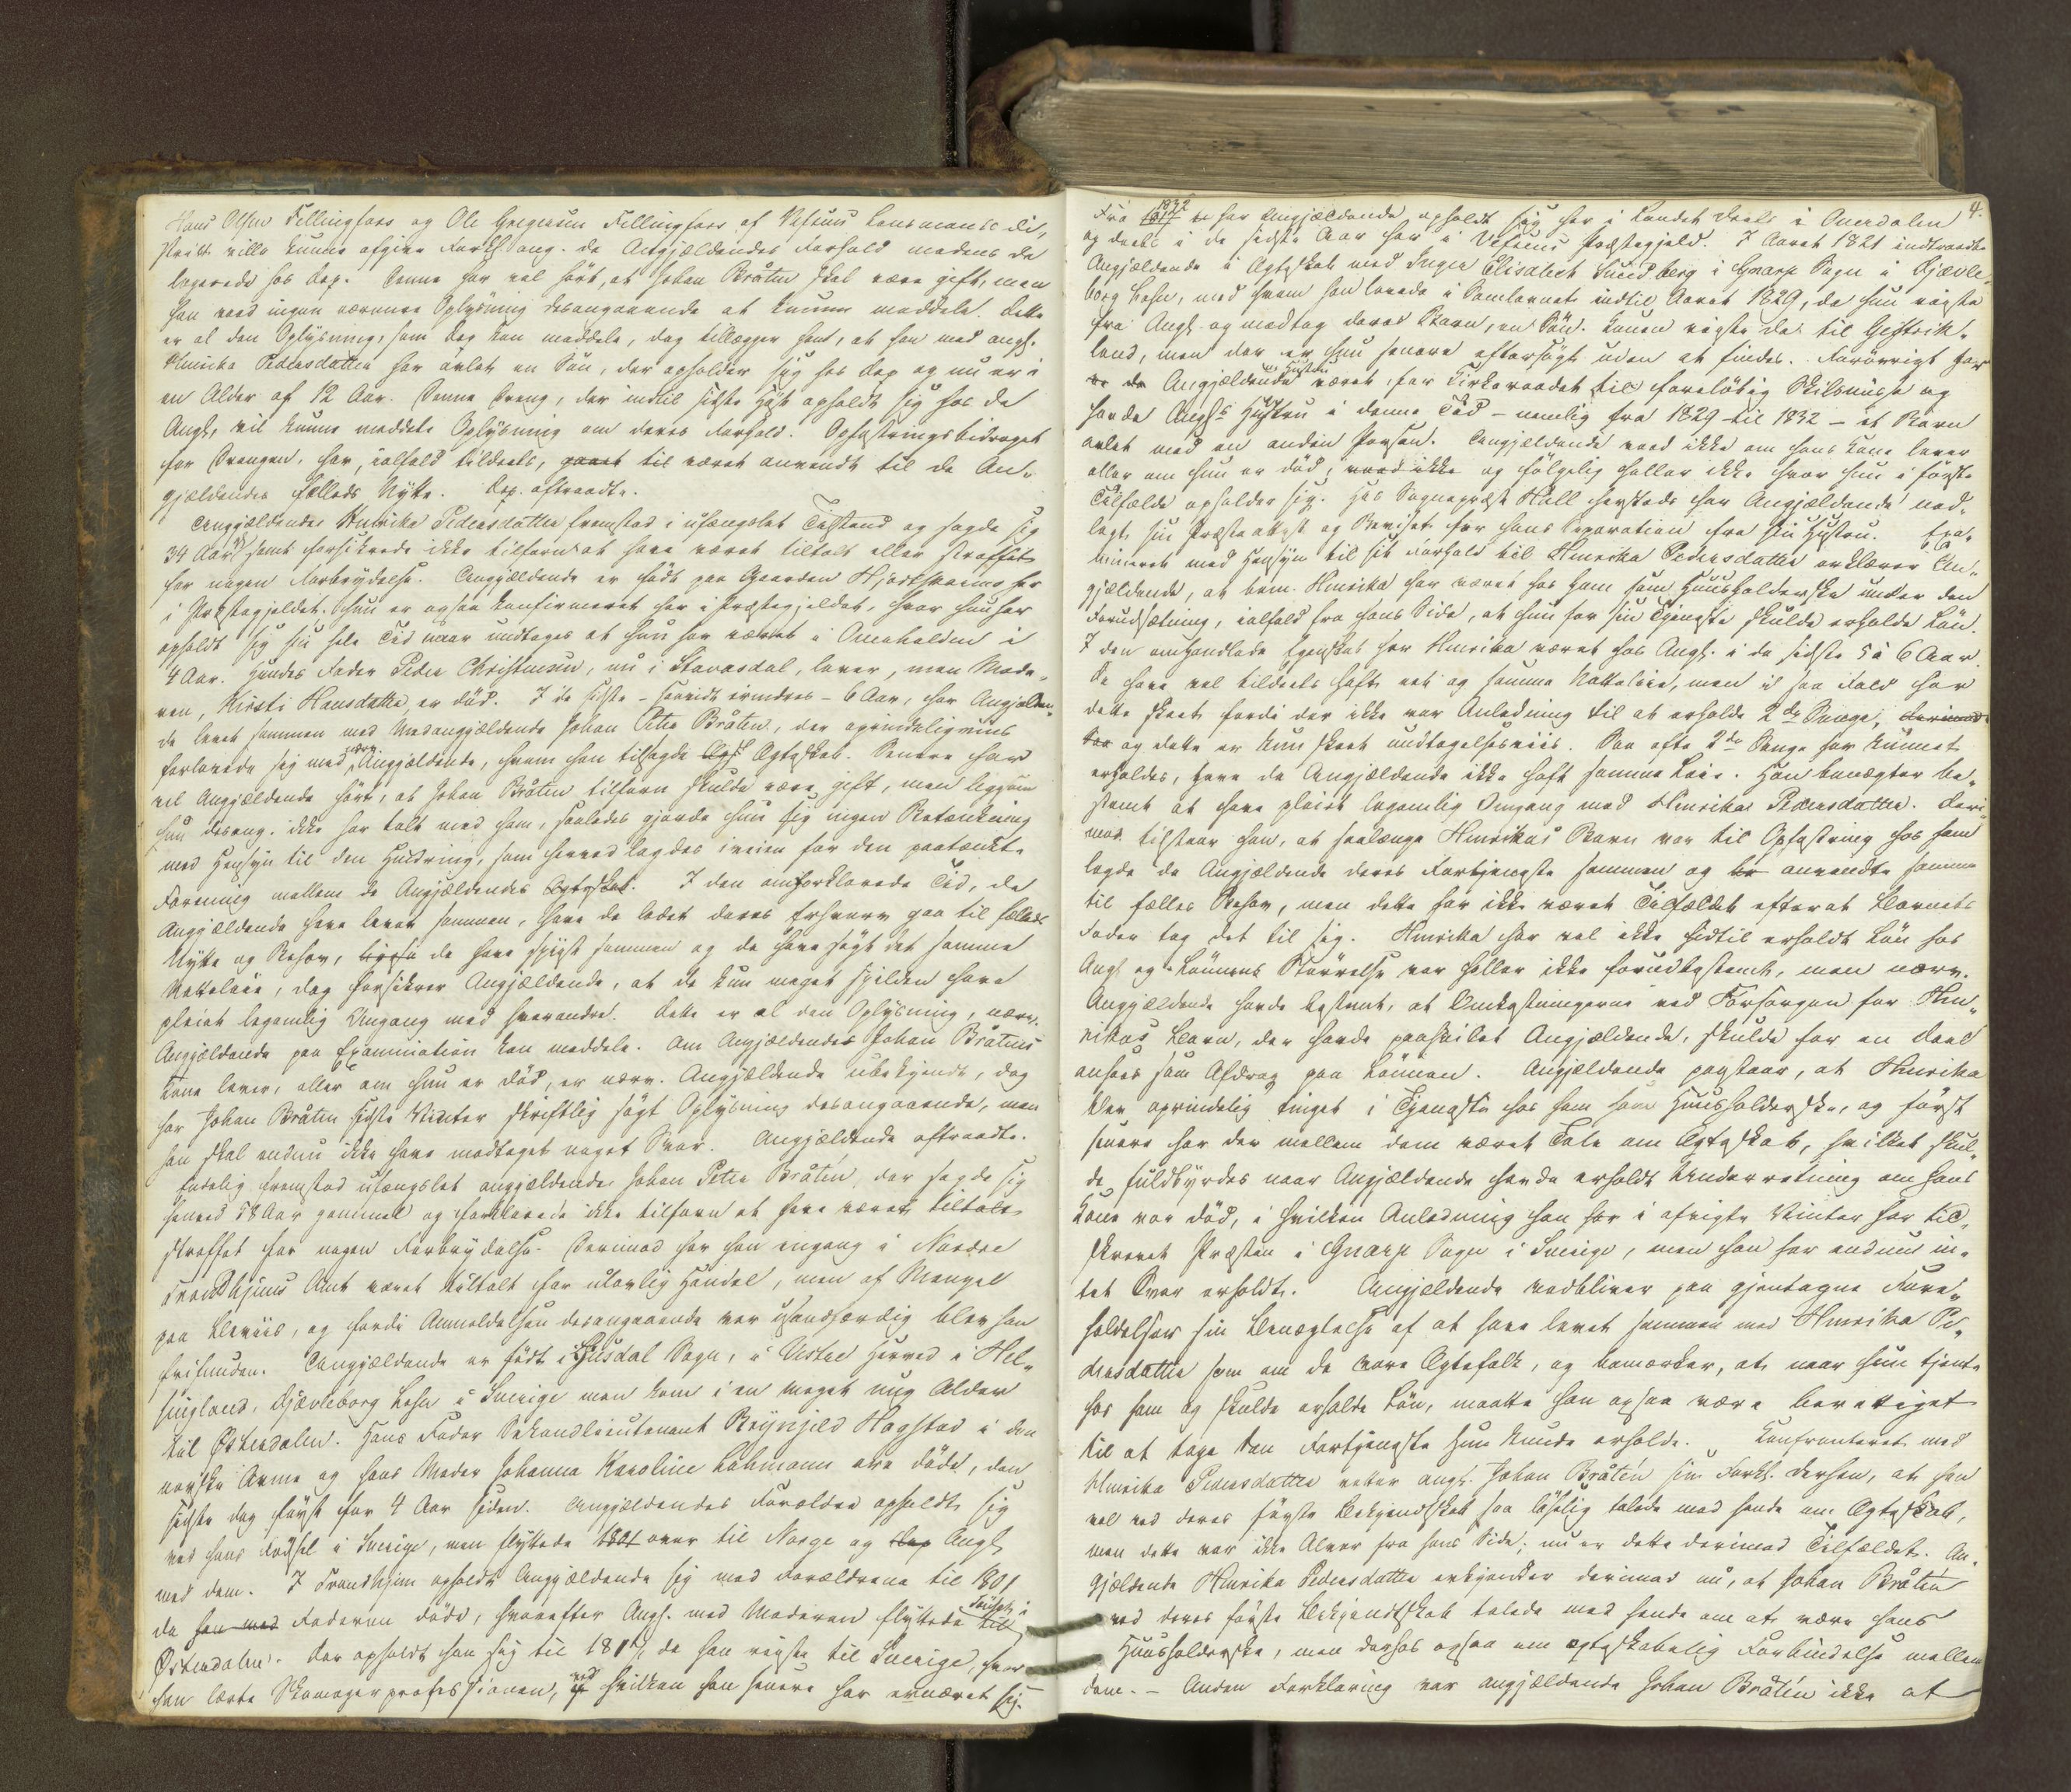 Hans Olsen Fellingfors og Ole Gregersen Fellingfors af Vefsens Lensmands Di-
strikt ville kunne afgive Forkl. ang. de Angjældendes Forhold medens de
logerede hos Dep. Denne har vel hørt, at Johan Bråten skal være gift, men
han veed ingen nærmere Oplysning desangaaende at kunne meddele. Dette
er al den Oplysning, som Dep. kan meddele, dog tillægger han, at han med angj.
Henrika Pedersdatter har avlet en Søn, der opholder sig hos Dep og nu er i
en Alder af 12 Aar. Denne Dreng, der indtil sidste Høst opholdt sig hos de
Angj., vil kunne meddele Oplysning om deres Forhold. Opfostringsbidraget
for Drengen, har, ialfald tildeels, gaaet til været anvendt til de An-
gjældendes fælleds Nytte. Dep. aftraadte.
Angjældende Henrika Pedersdatter fremstod i ufængslet Tilstand og sagde sig
34 Aar samt forsikrede ikke tilforn at have været tiltalt eller straffet
for nogen Forbrydelse. Angjældende er født paa Gaarden Hjortskarmo her
i Præstegjeldet. Hun er ogsaa konfirmeret her i Præstegjeldet, hvor hun har
opholdt sig sin hele Tid naar undtages at hun har været i Ranehalden i
4 Aar. Hendes Fader Peder Christensen, nu i Stavasdal, lever, men Mode-
ren, Kirsti Hansdatter, er død. I de sidste – henved erindres – 6 Aar, har Angjælden-
de levet sammen med Medangjældende Johan Peter Bråten, der oprindeligviis
forlovede sig med nærv. Angjældende, hvem han tilsagde Egt Ægteskab. Senere har
vel Angjældende hørt, at Johan Bråten tilforn skulde være gift, men ligesom
hun desang. ikke har talt med ham, saaledes gjorde hun sig ingen Betænkning
med Hensyn til den Hindring, som herved lagdes iveien for den paatænkte
Forening mellem de Angjældendes Ægteskab. I den omforklarede Tid, de
Angjældende have levet sammen, have de ladet deres Erhverv gaa til fælleds
Nytte og Behov, ligesom de have spiist sammen og de have søgt det samme
Natteleie, dog forsikrer Angjældende, at de kun meget sjelden have
pleiet legemlig Omgang med hverandre. Dette er al den Oplysning, nærv.
Angjældende paa Examination kan meddele. Om Angjældendes Johan Bråtens
Kone lever, eller om hun er død, er nærv. Angjældende ubekjendt, dog
har Johan Bråten sidste Vinter skriftlig søgt Oplysning desangaaende, men
han skal endnu ikke have modtaget noget Svar. Angjældende aftraadte.
Endelig fremstod ufængslet angjældende Johan Peter Bråten, der sagde sig
henved 58 Aar gammel og forklarede ikke tilforn at have været tiltalt
straffet for nogen Forbrydelse. Derimod har han engang i Nordre
Trondhjems Amt været tiltalt for ulovlig Handel, men af Mangel
paa Beviis, og fordi Anmeldelsen desangaaende var usandfærdig blev han
frifunden. Angjældende er født i Ljusdal Sogn, i Vestre Herred i Hel-
singland, Gjævleborg Lehn i Sverige men kom i en meget ung Alder
til Østerdalen. Hans Fader Sekondlieutenant Reynjeld Hagstad i den
norske Arme og hans Moder Johanna Karoline Lohmann ere døde, den
sidste dog først for 4 Aar siden. Angjældendes Forældre opholdt sig
ved hans Fødsel i Sverige, men flyttede 1801 over til Norge og Dep Angj.
med dem. I Trondhjem opholdt Angjældende sig med Forældrene til 1801
da han med Faderen døde, hvorefter Angj. med Moderen flyttede til
Østerdalen. Der opholdt han sig til 181, da han reiste til Sverige, hvor
han lærte Skomagerprofessionen, ved hvilken han senere har ernæret sig.
4.
Fra 1832 har Angjældende opholdt sig her i Landet deels i Overdalen
og deels i de sidste Aar her i Vefsens Præstegjeld. I Aaret 1821 indtraadte
Angjældende i Ægteskab med Inger Elisabeth Sundberg i Gnarp Sogn i Gjævle-
borg Lehn, med hvem han levede i Samlevnet indtil Aaret 1829, da hun reiste
fra Angj. og medtog deres Barn, en Søn. Konen reiste da til Gestrik-
land, men der er hun senere eftersøgt uden at findes. Forøvrigt har
de Angjældendes Hustru været for Kirkeraadet til foreløbig Skilsmisse og
havde Angj.s Hustru i denne Tid – nemlig fra 1829 til 1832 – et Barn
avlet med en anden Person. Angjældende veed ikke om hans Kone lever
eller om hun er død, veed ikke og følgelig heller ikke hvor hun i første
Tilfælde opholder sig. Hos Sognepræst Hall hersteds har Angjældende ned-
lagt sin Præsteattest og Beviset for hans Separation fra sin Hustru. Exa-
mineret med Hensyn til sit Forhold til Henrika Pedersdatter erklærer An-
gjældende, at bem. Henrika har været hos ham som Huusholderske under den
Forudsætning, ialfald fra hans Side, at hun for sin Tjeneste skulde erholde Løn.
I den omhandlede Egenskab har Henrika været hos Angj. i de sidste 5 à 6 Aar.
De have vel tildeels havt eet og samme Natteleie, men i saa Fald har
dette skeet fordi der ikke var Anledning til at erholde 2de Senge, derimod
og dette er kun skeet undtagelsesviis. Saa ofte 2de Senge har kunnet
erholdes, have de Angjældende ikke havt samme Leie. Han benægter be-
stemt at have pleiet legemlig Omgang med Henrika Pedersdatter. Deri-
mod tilstaar han, at saalænge Henrikas Barn var til Opfostring hos ham
lagde de Angjældende deres Fortjeneste sammen og anvendte samme
til fælles Behov, men dette har ikke været Tilfældet efterat Barnets
Fader tog det til sig. Henrika har vel ikke hidtil erholdt Løn hos
Angj. og Lønnens Størrelse var heller ikke forudbestemt, men nærv.
Angjældende havde bestemt, at Omkostningerne ved Forsorgen for Hen-
rikas Barn, der havde paahvilet Angjældende, skulde for en Deel
ansees som Afdrag paa Lønnen. Angjældende paastaar, at Henrika
blev oprindelig tinget i Tjeneste hos ham som Huusholderske, og først
senere har der mellem dem været Tale om Ægteskab, hvilket skul-
de fuldbyrdes naar Angjældende havde erholdt Underretning om hans
Kone var død, i hvilken Anledning han har i afvigte Vinter har til-
skrevet Præsten i Gnarp Sogn i Sverige, men han har endnu in-
tet Svar erholdt. Angjældende vedbliver paa gjentagne Fore-
holdelser sin Benægtelse af at have levet sammen med Henrika Pe-
dersdatter som om de vare Ægtefolk, og bemærker, at naar hun tjente
hos ham og skulde erholde Løn, maatte han ogsaa være berettiget
til at tage den Fortjeneste hun kunde erholde. Konfronteret med
Henrika Pedersdatter retter angj. Johan Bråten sin Forkl. derhen, at han
vel ved deres første Bekjendtskab saa løselig talede med hende om Ægteskab,
men dette var ikke Alvor fra hans Side; nu er dette derimod Tilfældet. An-
gjældende Henrika Pedersdatter erkjender derimod nu, at Johan Bråten
ved deres første Bekjendtskab talede med hende om at være hans
Huusholderske, men derhos ogsaa om ægteskabelig Forbindelse mellem
dem. – Anden Forklaring var angjældende Johan Bråten ikke at